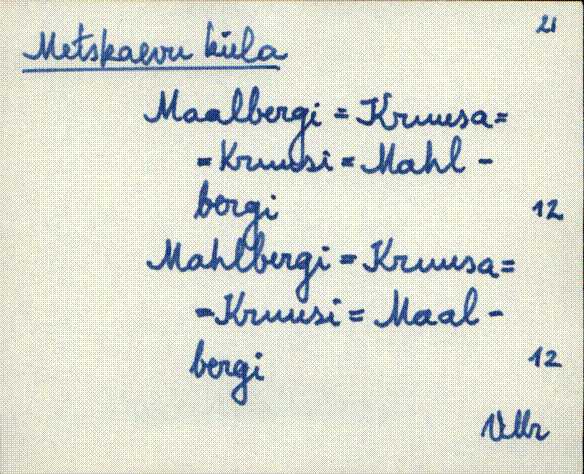 21
Metskaevu küla
Maalbergi = Kruusa =
= Kruusi = Mahl -
bergi 12
Mahlbergi = Kruusa =
= Kruusi = Maal -
bergi 12